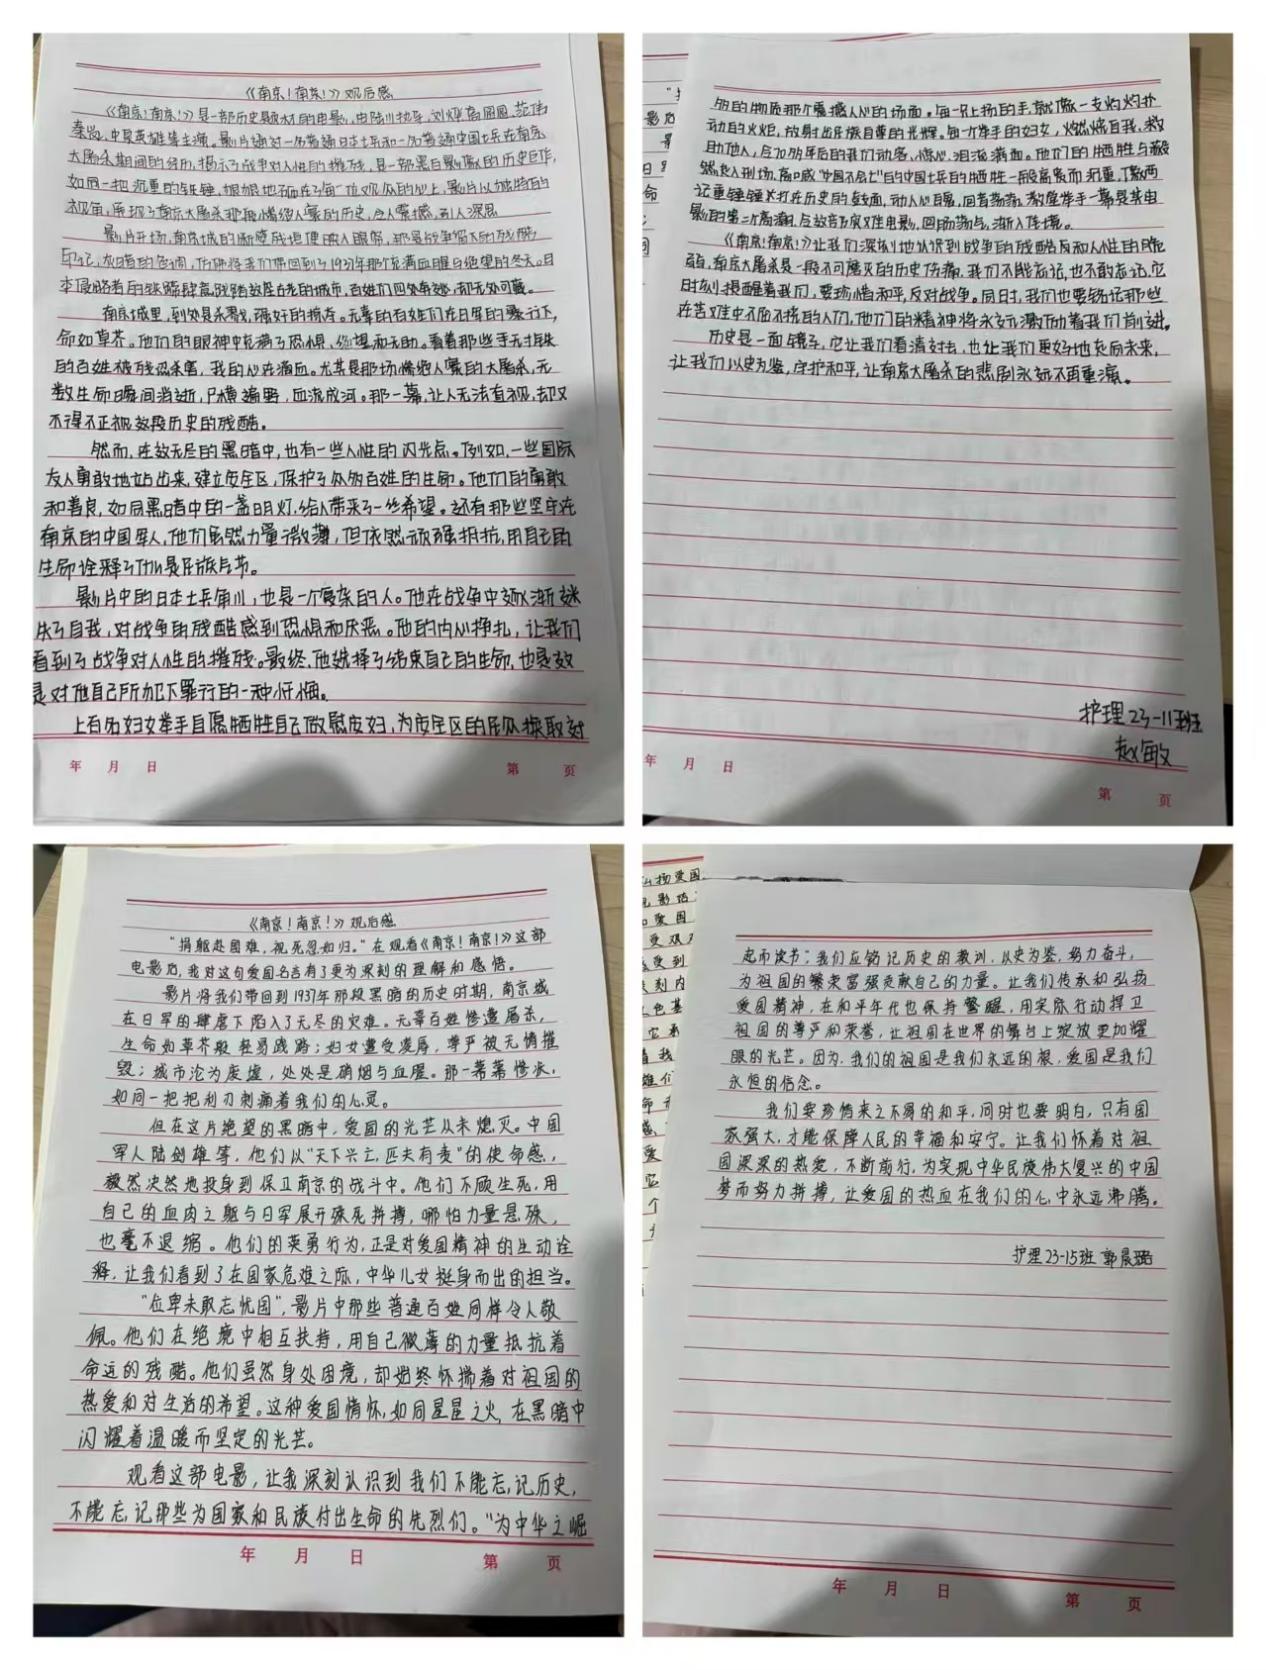 《南京！南京！》观后感
《南京！南京！》是一部历史题材的电影，由陆川执导，刘烨、高圆圆、范伟
秦岚、中泉英雄等主演。影片通过一名普通日本士兵和一名普通中国士兵在南京
大屠杀期间的经历，揭示了战争对人性的摧残，是一部黑白影像的历史巨作，
如同一把沉重的铁锤，狠狠地砸在了每一位观众的心上，影片以独特的
视角，展现了南京大屠杀那段惨绝人寰的历史，令人震撼，引人深思
影片开场，南京城的断壁残垣便映入眼帘，那是战争留下的残酷
印记，灰暗的色调，仿佛将我们带回到了1937年那个充满血腥与绝望的冬天。日
本侵略者的铁蹄肆意践踏这座古老的城市，百姓们四处奔逃，却无处可藏。
南京城里，到处是杀戮，强奸的掠夺。无辜的百姓们在日军的暴行下，
命如草芥。他们的眼神中充满了恐惧、绝望和无助。看着那些手无寸铁
的百姓被残忍杀害，我的心在滴血。尤其是那场惨绝人寰的大屠杀，无
数生命瞬间消逝，尸横遍野，血流成河。那一幕，让人无法直视，却又
不得不正视这段历史的残酷。
然而，在这无尽的黑暗中，也有一些人性的闪光点。例如，一些国际
友人勇敢地站出来，建立安全区，保护了众多百姓的生命。他们的勇敢
和善良，如同黑暗中的一盏明灯，给人带来了一丝希望。还有那些坚守在
南京的中国军人，他们虽然力量微薄，但依然顽强抵抗，用自己的
生命诠释了什么是民族气节。
影片中的日本士兵角川，也是一个复杂的人。他在战争中逐渐迷
失了自我，对战争的残酷感到恐惧和厌恶。他的内心挣扎，让我们
看到了战争对人性的摧残。最终，他选择了结束自己的生命，也是这
是对他自己所犯下罪行的一种忏悔。
上百名妇女举手自愿牺牲自己做慰安妇，为安全区的民众换取过
的物质那个震撼人心的场面。每一只上扬的手，就像一支灼灼扑
动的火炬，放射出民族自尊的光辉。每一个举手的妇女，燃烧自我，救
助他人，令70多年后的我们动容、惊心、泪流满面。他们的牺牲与毅
然走入刑场，高呼“中国不会亡”的中国士兵的牺牲一般高贵而沉重，像两
记重锤锤打在历史的鼓面，动人心魄，回音荡荡，教堂举手一幕是其由
《南京！南京！》让我们深刻地认识到战争的残酷和人性的脆
弱，南京大屠杀是一段不可磨灭的历史伤痛，我们不能忘记，也不敢忘记，它
时刻提醒着我们，要珍惜和平，反对战争。同时，我们也要铭记那些
在苦难中不屈不挠的人们，他们的精神将永远激励着我们前进。
历史是一面镜子，它让我们看清过去，也让我们更好地走向未来，
让我们以史为鉴，守护和平，让南京大屠杀的悲剧永远不再重演。
护理23-11班
赵敏
年 月 日 第 页
年 月 日 第 页
《南京！南京！》观后感
“捐躯赴国难，视死忽如归。”在观看《南京！南京！》这部
电影后，我对这句爱国名言有了更为深刻的理解和感悟。
影片将我们带回到1937年那段黑暗的历史时期，南京城
在日军的肆虐下陷入了无尽的灾难。无辜百姓惨遭屠杀，
生命如草芥般轻易践踏；妇女遭受凌辱，尊严被无情摧
毁；城市沦为废墟，处处是硝烟与血腥。那一幕幕惨状，
如同一把把利刃刺痛着我们的心灵。
但在这片绝望的黑暗中，爱国的光芒从未熄灭。中国
军人陆剑雄等，他们以“天下兴亡，匹夫有责”的使命感，
毅然决然地投身到保卫南京的战斗中。他们不顾生死，用
自己的血肉之躯与日军展开殊死拼搏，哪怕力量悬殊，
也毫不退缩。他们的英勇行为，正是对爱国精神的生动诠
释，让我们看到了在国家危难之际，中华儿女挺身而出的担当。
“位卑未敢忘忧国”，影片中那些普通百姓同样令人敬
佩。他们在绝境中相互扶持，用自己微薄的力量抵抗着
命运的残酷。他们虽然身处困境，却始终怀揣着对祖国的
热爱和对生活的希望。这种爱国情怀，如同星星之火，在黑暗中
闪耀着温暖而坚定的光芒。
观看这部电影，让我深刻认识到我们不能忘记历史，
不能忘记那些为国家和民族付出生命的先烈们。“为中华之崛
起而读书”，我们应铭记历史的教训，以史为鉴，努力奋斗，
为祖国的繁荣富强贡献自己的力量。让我们传承和弘扬
爱国精神，在和平年代也保持警醒，用实际行动捍卫
祖国的尊严和荣誉，让祖国在世界的舞台上绽放更加耀
眼的光芒。因为，我们的祖国是我们永远的根，爱国是我们
永恒的信念。
我们要珍惜来之不易的和平，同时也要明白，只有国
家强大，才能保障人民的幸福和安宁。让我们怀着对祖
国深深的热爱，不断前行，为实现中华民族伟大复兴的中国
梦而努力拼搏，让爱国的热血在我们的心中永远沸腾。
护理23-15班 郭晨璐
年 月 日 第 页
年 月 日 第 页